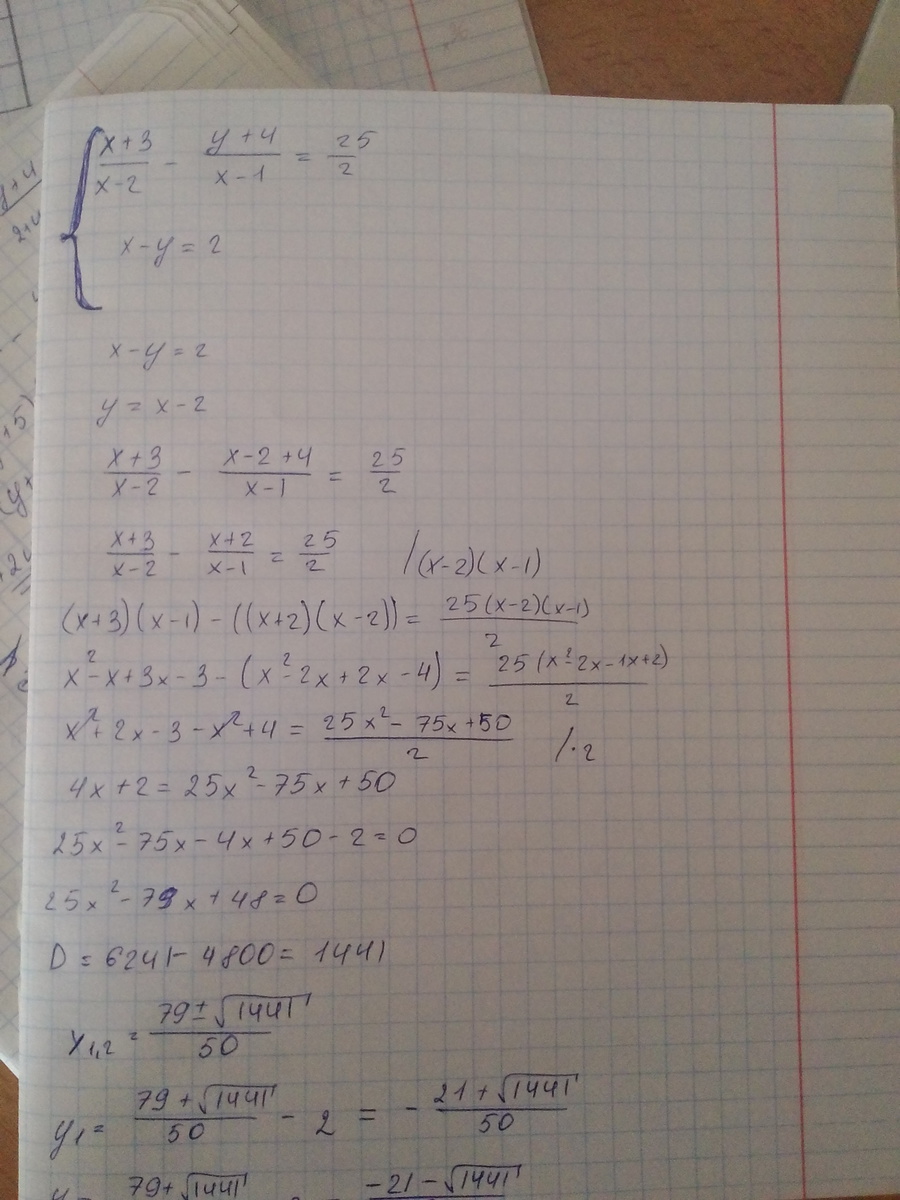 { (x+3)/(x-2) - (y+4)/(x-1) = 25/2
x-y=2
x-y=2
y = x-2
(x+3)/(x-2) - (x-2+4)/(x-1) = 25/2
(x+3)/(x-2) - (x+2)/(x-1) = 25/2 /(x-2)(x-1)
(x+3)(x-1) - ((x+2)(x-2)) = 25(x-2)(x-1)/2
x²-x+3x-3-(x²-2x+2x-4) = 25(x²-2x-1x+2)/2
x²+2x-3-x²+4 = (25x²-75x+50)/2 /·2
4x+2=25x²-75x+50
25x²-75x-4x+50-2=0
25x²-79x+48=0
D=6241-4800=1441
x1,2 = (79±√1441)/50
y1= (79+√1441)/50 - 2 = - (21+√1441)/50
(79+√1441) = (-21-√1441)